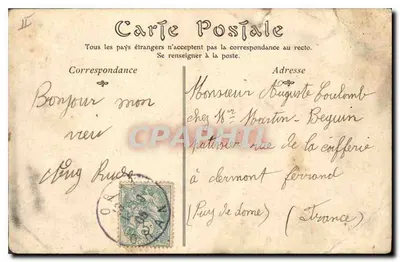 II
Carte Postale
Tous les pays étrangers n'acceptent pas la correspondance au recto.
Se renseigner à la poste.
Correspondance
Adresse
Bonjour mon
vieu
Aug
Monsieur Auguste Coulomb
chez Mr Martin-Beguin
patissier rue de la coifferie
à clermont ferrand
(Puy de dome) (France)
CARTOPHILIE